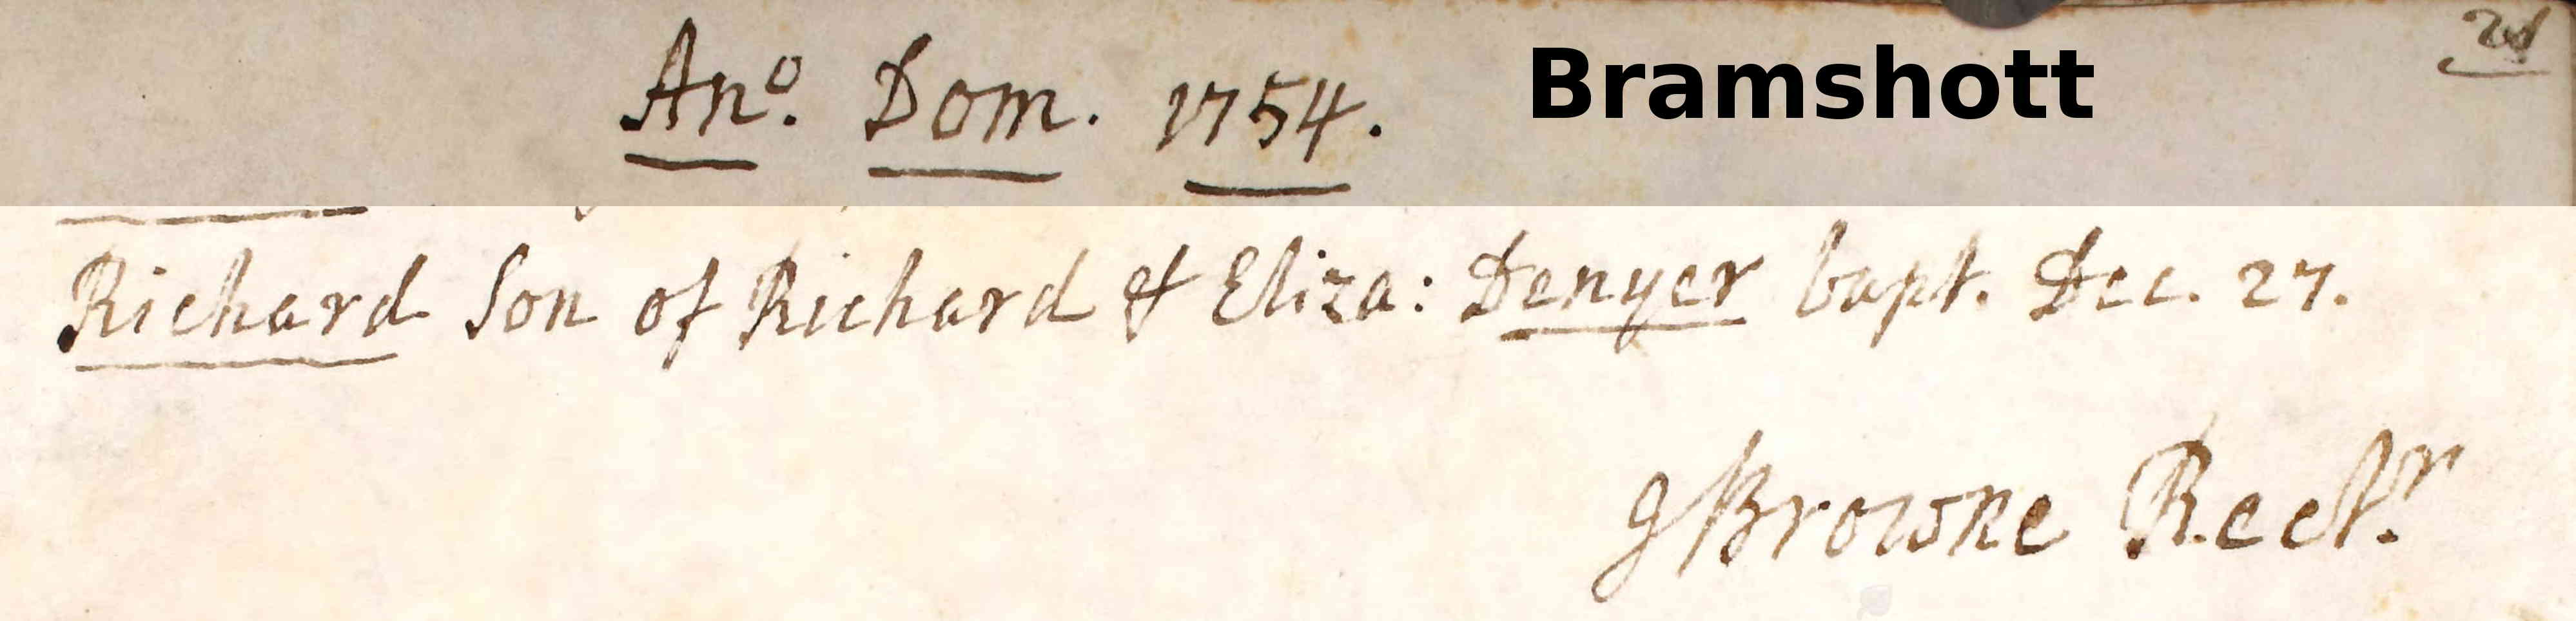 Anº. Dom. 1754. Bramshott
Richard Son of Richard & Eliza: Denyer bapt. Dec. 27.
G Browne Rectr.